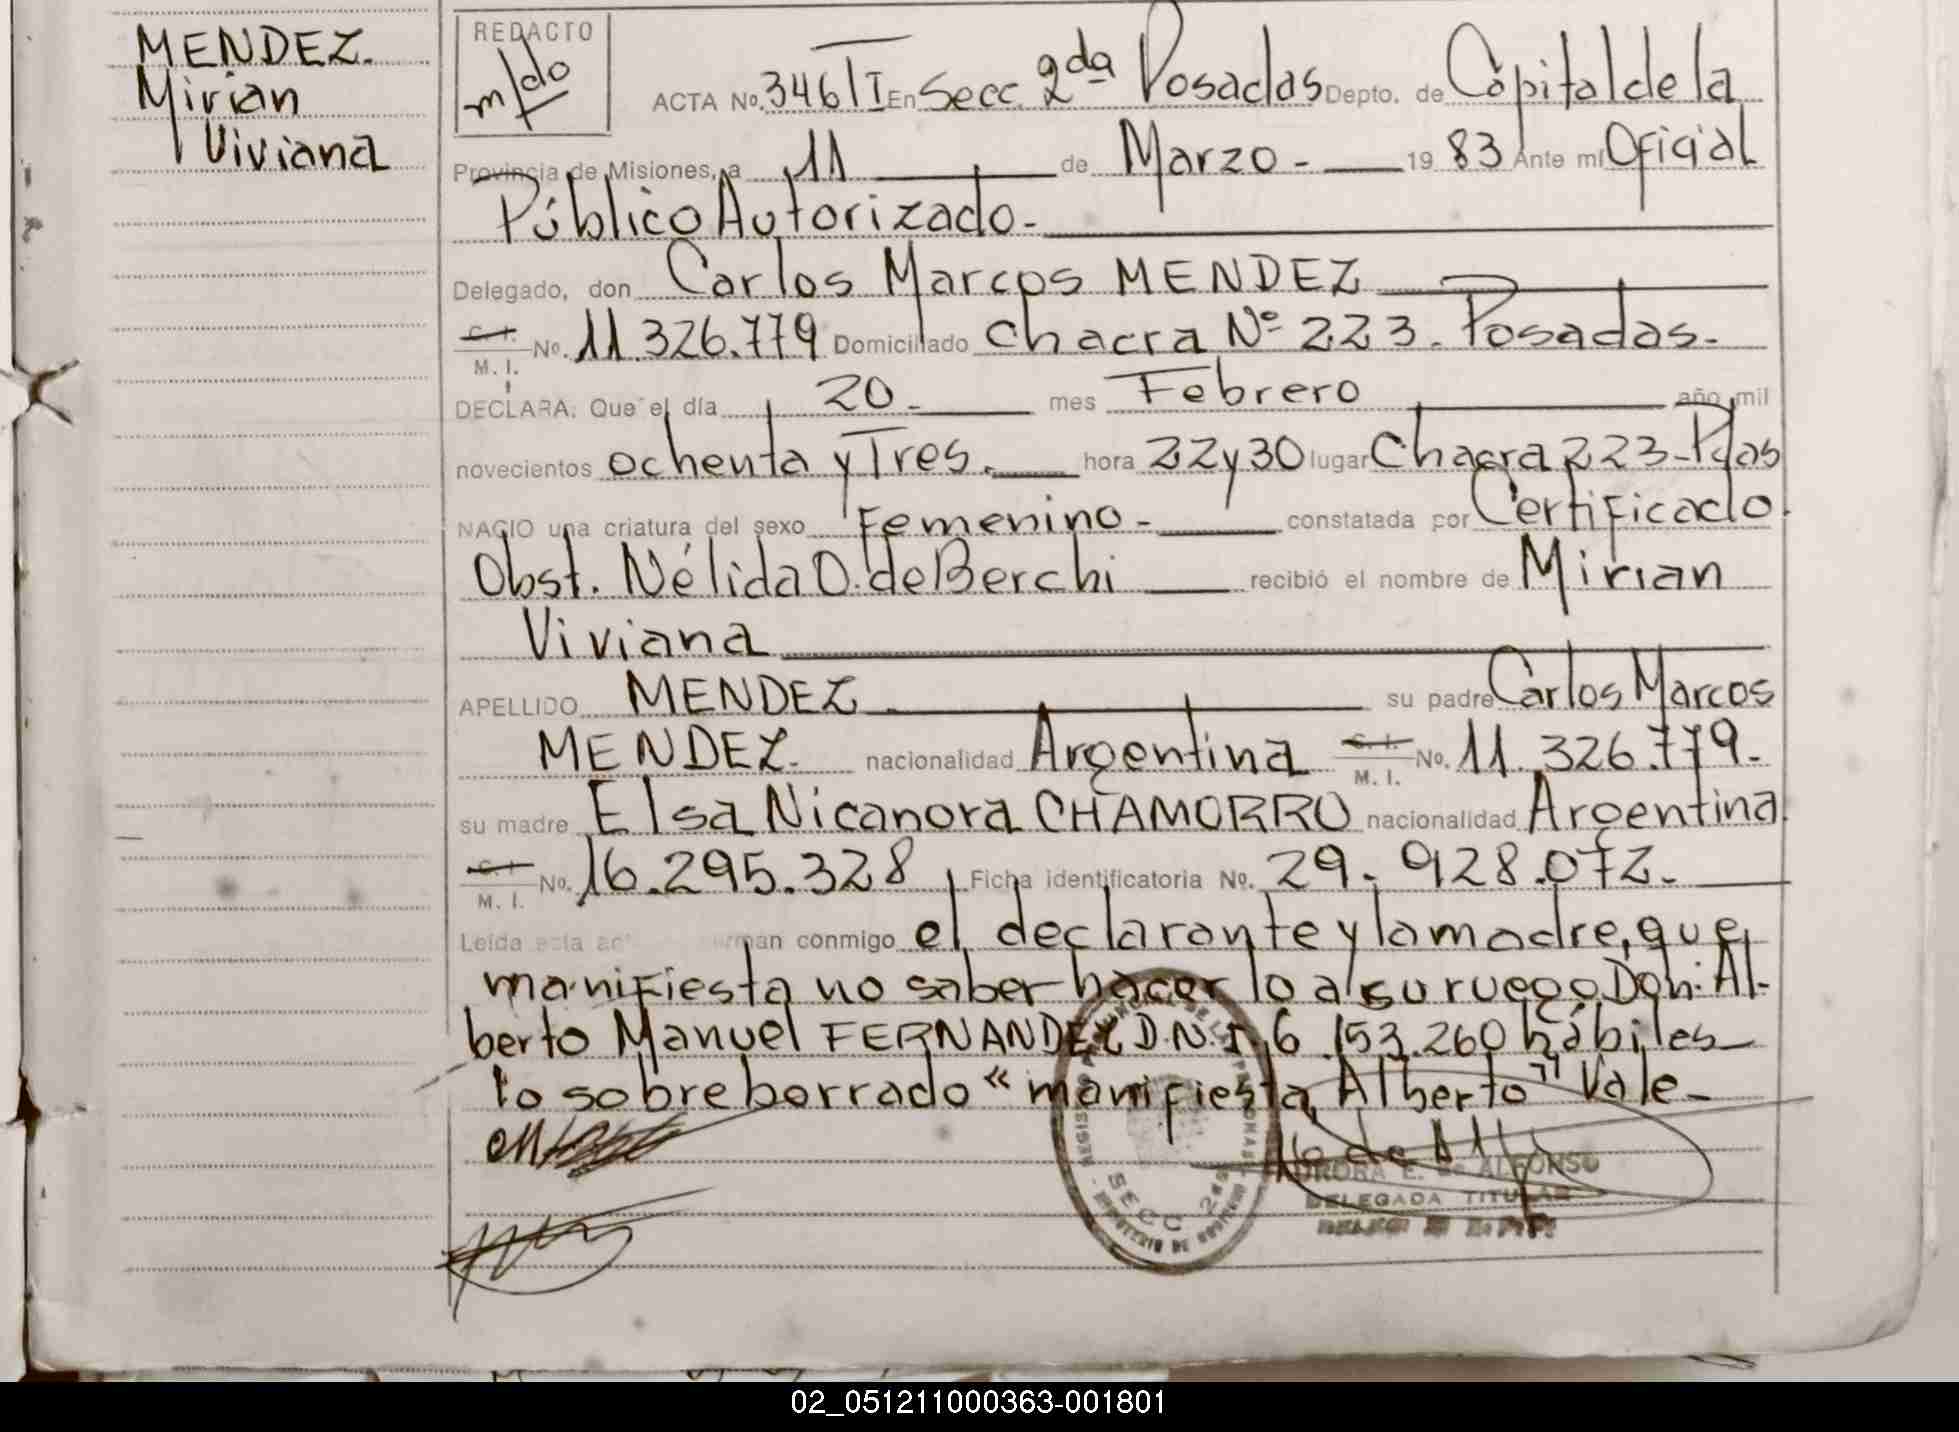 MENDEZ.
Mirian
Viviana
REDACTO
ACTA No. 346/I En Secc. 2da Posadas Depto. de Capital de la
Provincia de Misiones, a 11 de Marzo - 19 83 Ante mí Oficial
Público Autorizado.-
Delegado, don Carlos Marcos MENDEZ
C. I. M. I. No. 11.326.779 Domiciliado Chacra Nº 223. Posadas.-
DECLARA: Que el día 20.- mes Febrero año mil
novecientos ochenta y Tres. hora 22 y 30 lugar Chacra 223-Pdas
NACIO una criatura del sexo Femenino - constatada por Certificado
Obst. Nélida O. de Berchi recibió el nombre de Mirian
Viviana
APELLIDO MENDEZ su padre Carlos Marcos
MENDEZ. nacionalidad Argentina C. I. M. I. No. 11.326.779.-
su madre Elsa Nicanora CHAMORRO nacionalidad Argentina
C. I. M. I. No. 16.295.328 Ficha identificatoria No. 29.928.072.-
Leída esta conmigo el declarante y la madre, que
manifiesta no saber hacerlo a su ruego Don: Al-
berto Manuel FERNANDEZ D.N.I. 6.153.260 hábiles
lo sobreborrado "manifiesta, Alberto" Vale-
AURORA E. de ALFONSO
DELEGADA TITULAR
SECC 2da
02_051211000363-001801